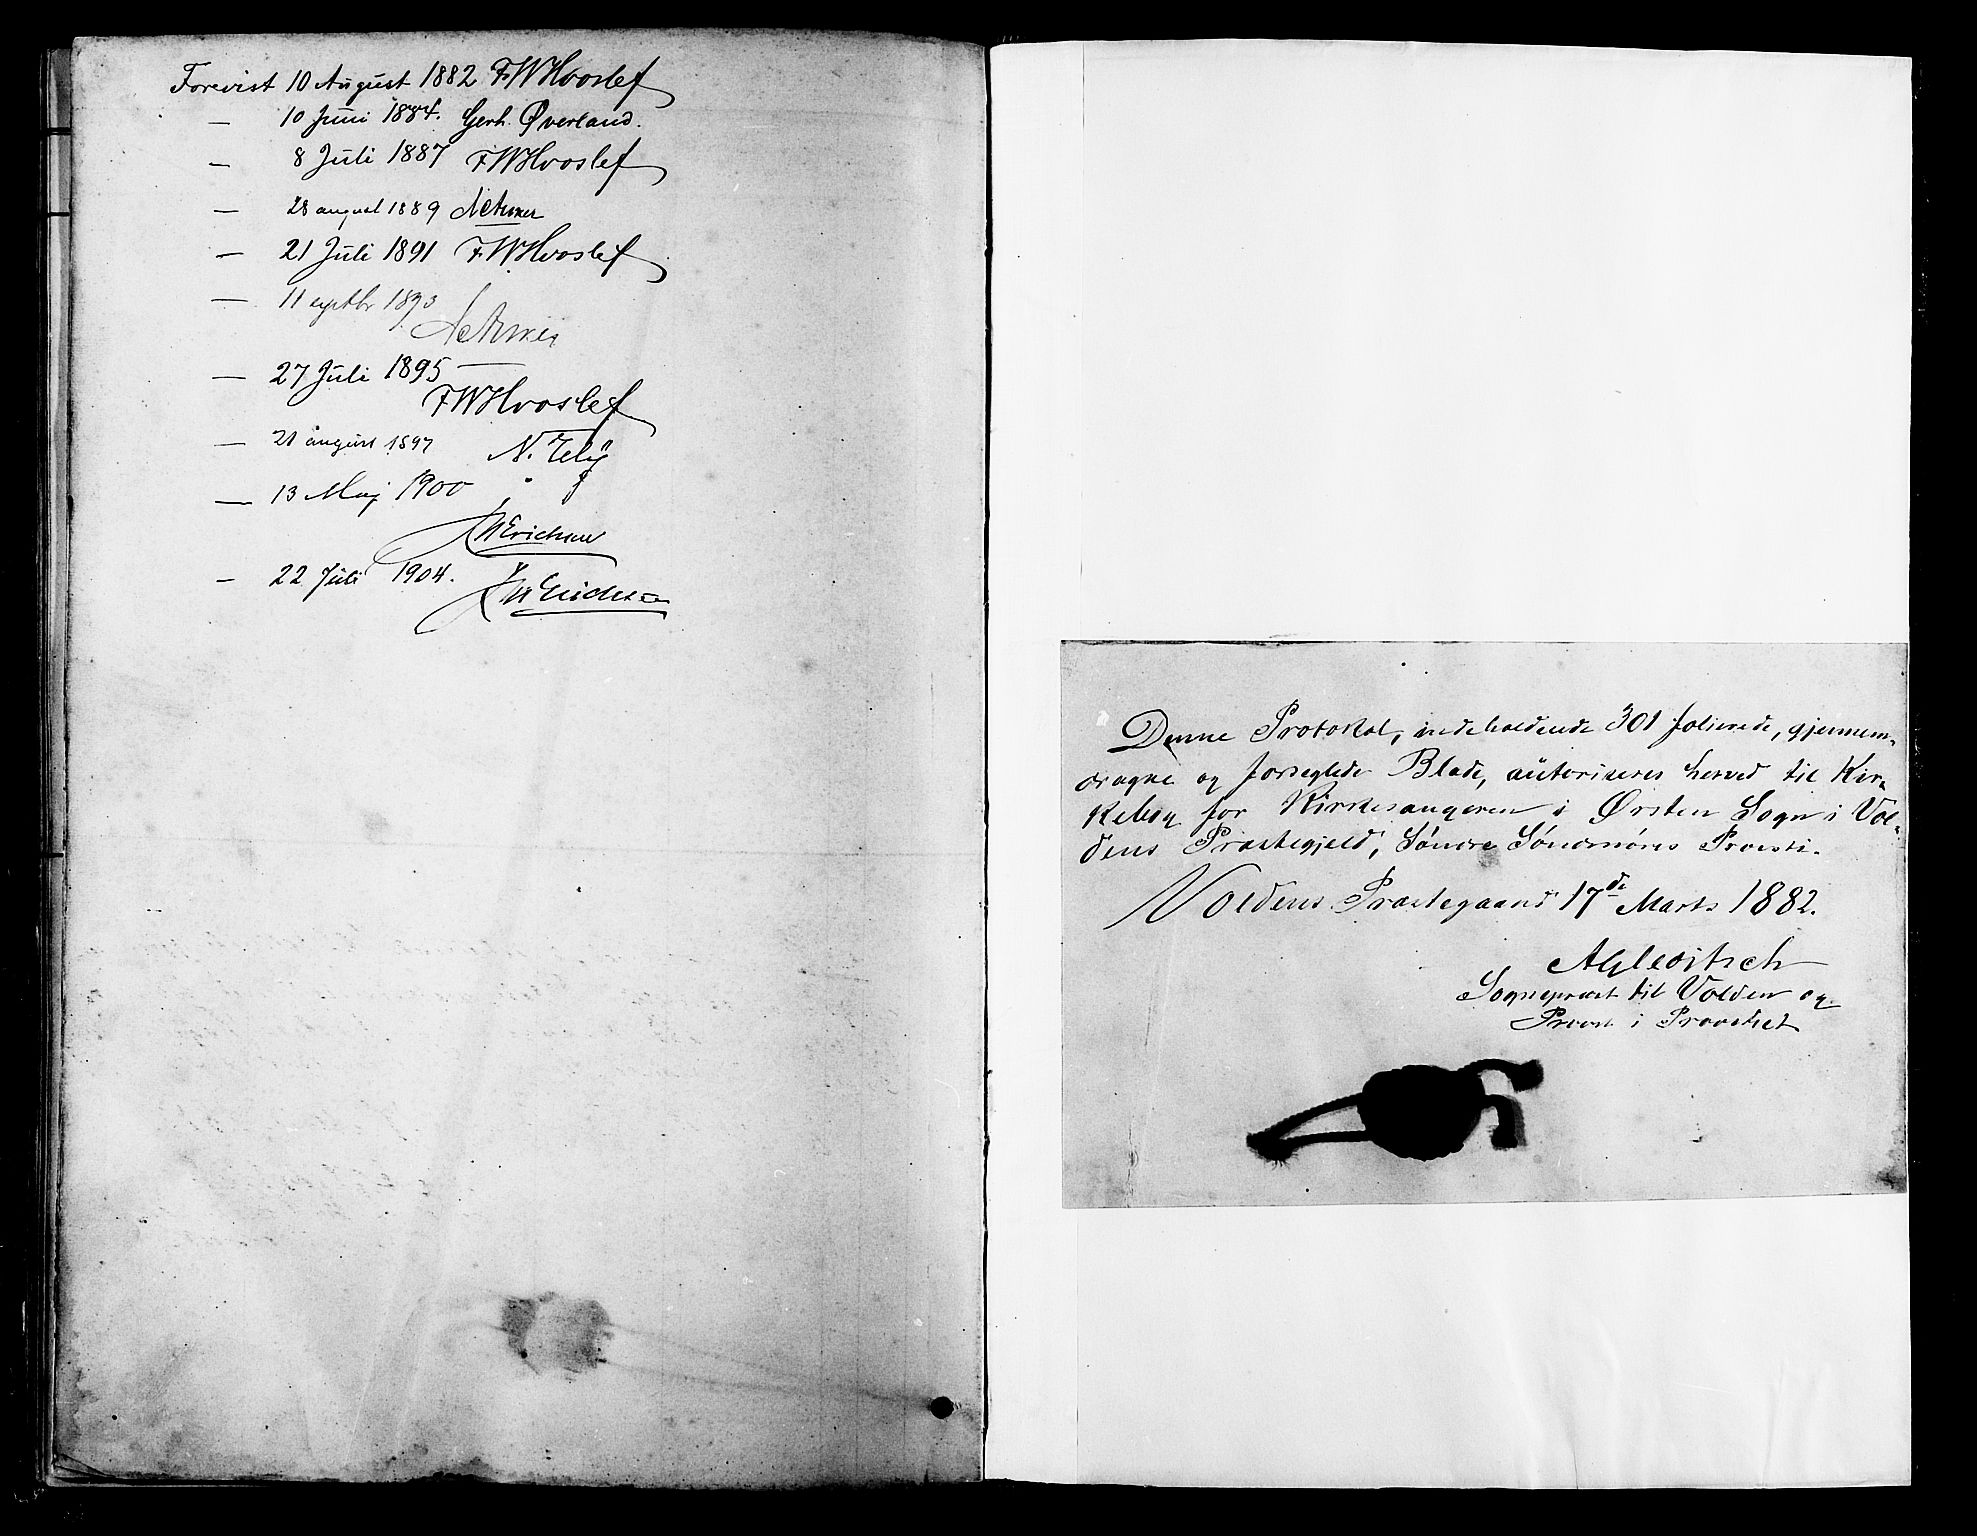 Forevist 10 August 1882 FWHvoslef
— 10 Juni 1884. Gerh. Øverland.
— 8 Juli 1887 FWHvoslef
— 28 august 1889
— 21 Juli 1891 FWHvoslef
— 11 septbr 1893
— 27 Juli 1895 —
FWHvoslef
— 21 august 1897 N.
— 13 Maj 1900
Erichsen
— 22 Juli 1904.
Erichsen
Denne Protokol, indeholdende 301 folierede, gjennem-
dragne og forseglede Blade, autoriseres herved til Kir-
kebog for Kirkesangeren i Ørsten Sogn i Vol-
dens Præstegjeld, Søndre Søndmøres Provsti.
Voldens Præstegaard 17de Marts 1882.
AGleditsch
Sognepræst til Volden og
Provst i Provstiet